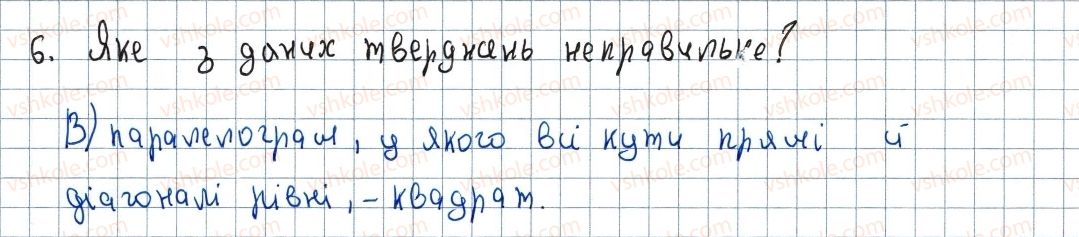 6. Яке з даних тверджень неправильне?
В) паралелограм, у якого всі кути прямі й
діагоналі рівні, - квадрат.